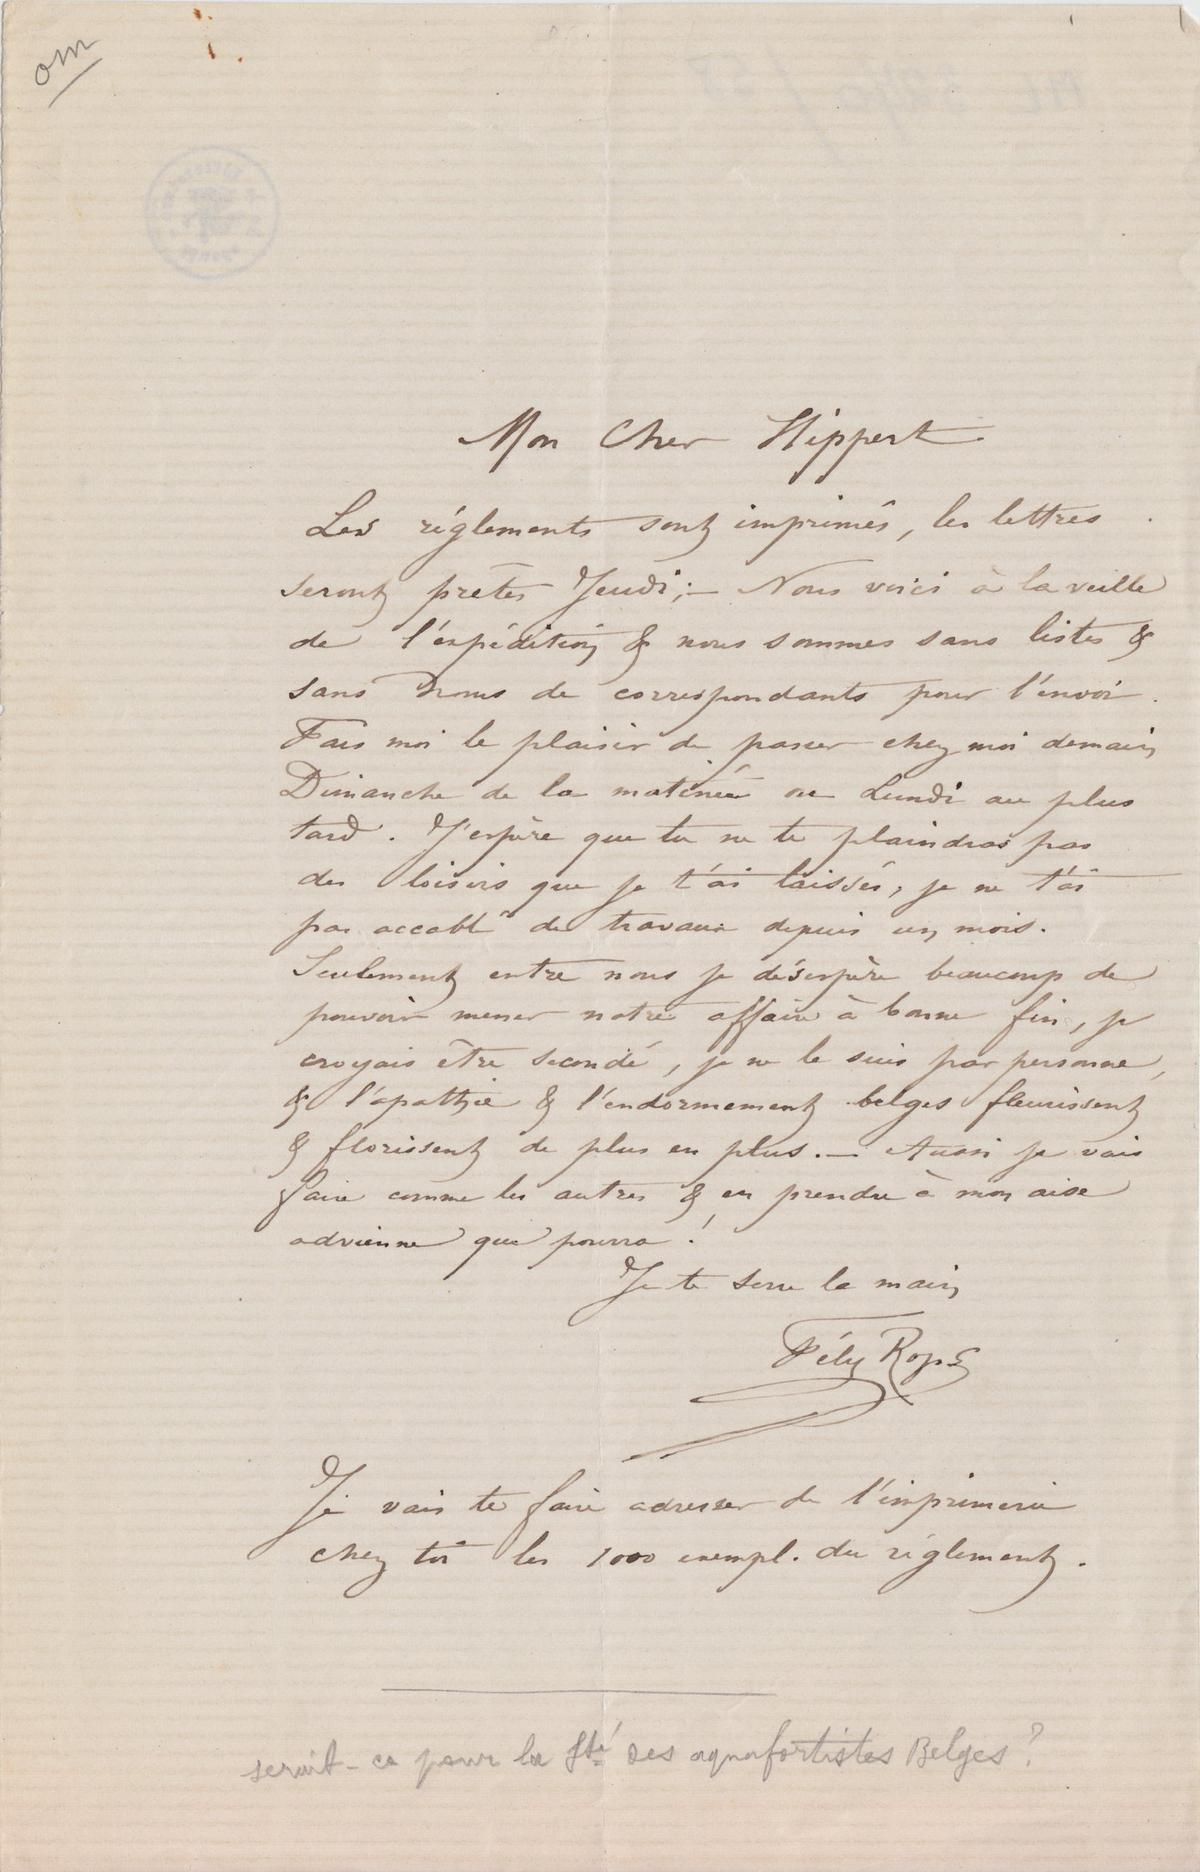 om
Mon Cher Hippert
Les réglements sont imprimés, les lettres
seront prêtes Jeudi; — Nous voici à la veille
de l'expédition & nous sommes sans listes &
sans noms de correspondants pour l'envoi.
Fais moi le plaisir de passer chez moi demain
Dimanche de la matinée ou Lundi au plus
tard. J'espère que tu ne te plaindras pas
des loisirs que je t'ai laissés, je ne t'ai
pas accablé de travaux depuis un mois.
Seulement entre nous je désespère beaucoup de
pouvoir mener notre affaire à bonne fin, je
croyais être secondé, je ne le suis par personne,
& l'apathie & l'endormement belges fleurissent
& florissent de plus en plus. — Aussi je vais
faire comme les autres & en prendre à mon aise
advienne que pourra !
Je te serre la main
Fély Rops
Je vais te faire adresser de l'imprimerie
chez toi les 1000 exempl. du réglement.
serait-ce pour la Sté des aquafortistes Belges ?